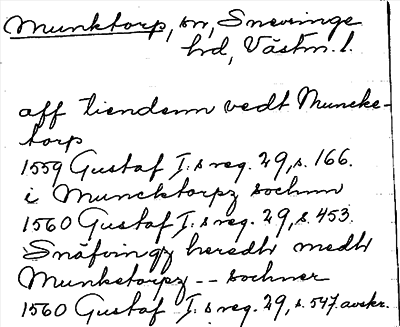 Munktorp, sn, Snevringe
hd, Västm. l.
aff tiendenn vedt Muncke-
torp
1559 Gustaf I:s reg. 29, s. 166.
i Muncktorpz sochnn
1560 Gustaf I:s reg. 29, s. 453.
Snäfvingz heredh medh
Munketorpz -- sochner
1560 Gustaf I:s reg. 29, s. 547 avskr.